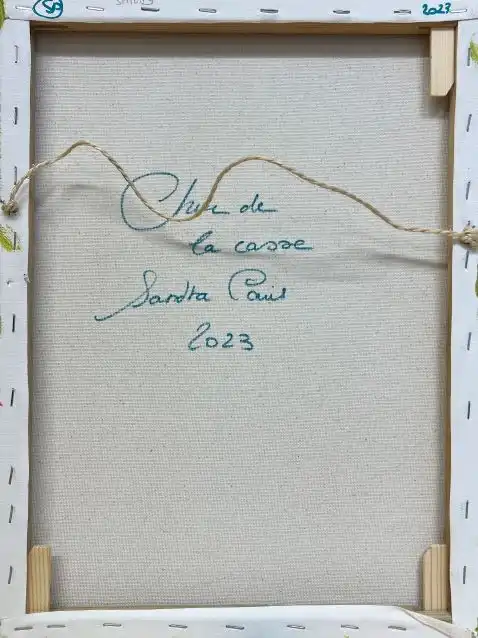 SP
2023
Chien de
la casse
Sandra Paris
2023